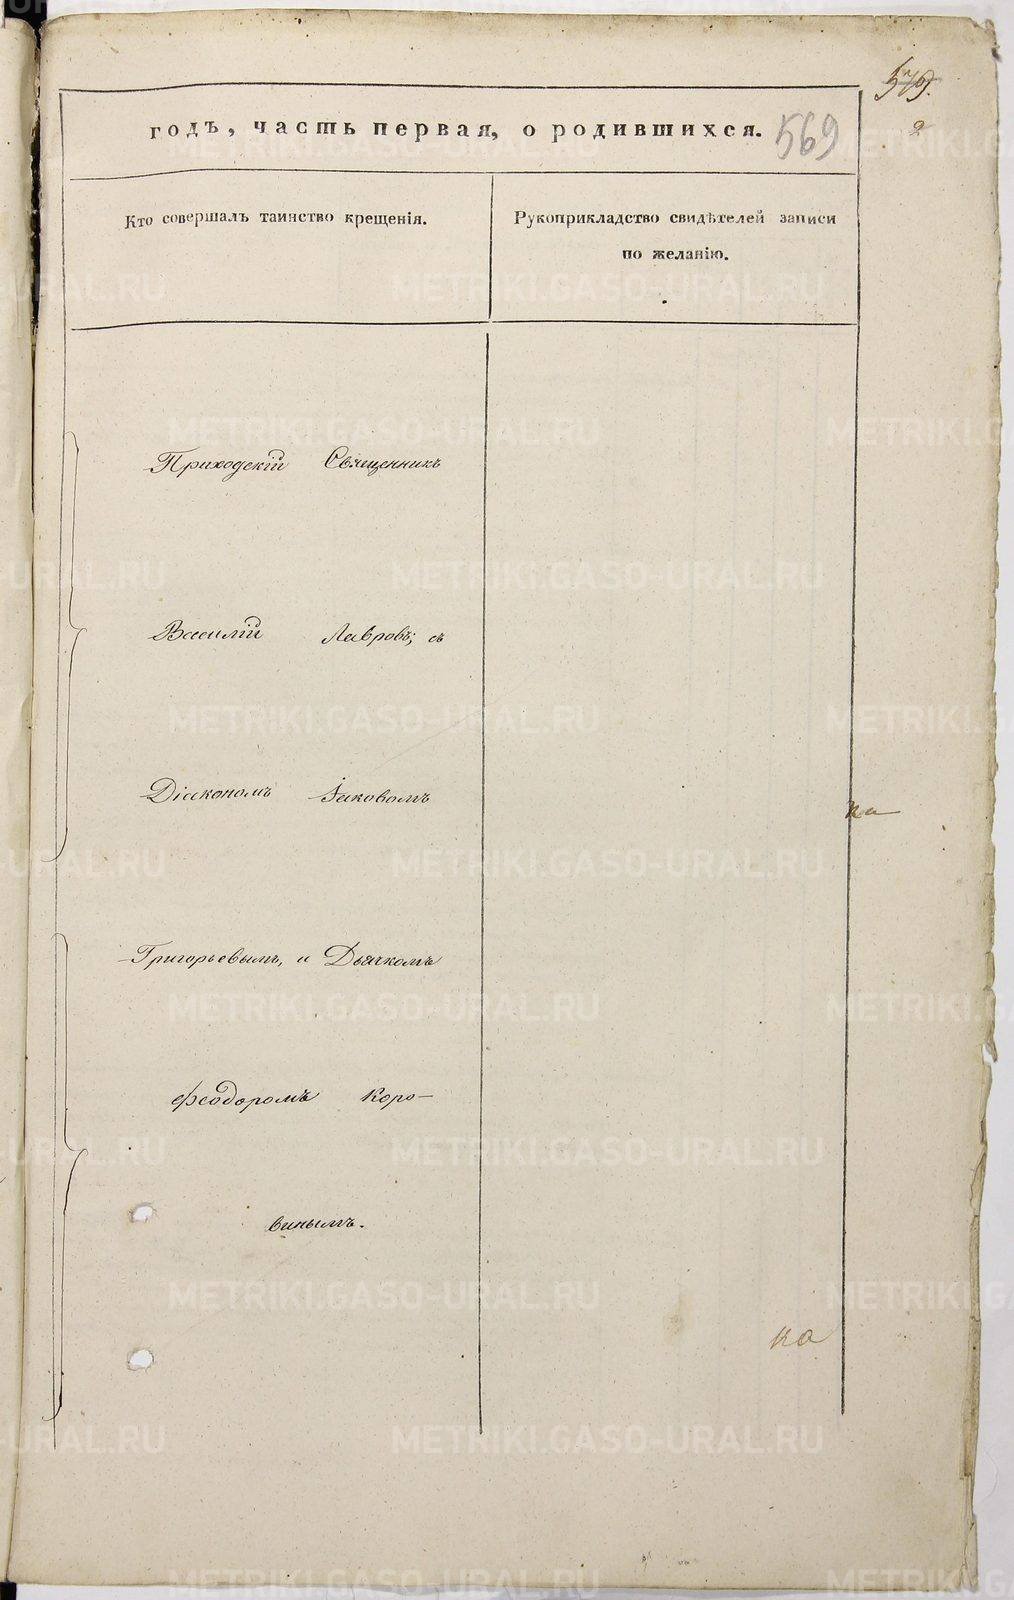 579.
годъ, часть первая, о родившихся. 569
2
Кто совершалъ таинство крещенія.
Рукоприкладство свидѣтелей записи
по желанію.
Приходскій Священникъ
Василій Лавровъ; съ
Діакономъ Іаковомъ
Григорьевымъ, и Дьячкомъ
Ѳеодоромъ Коро-
винымъ.
ка
METRIKI.GASO-URAL.RU